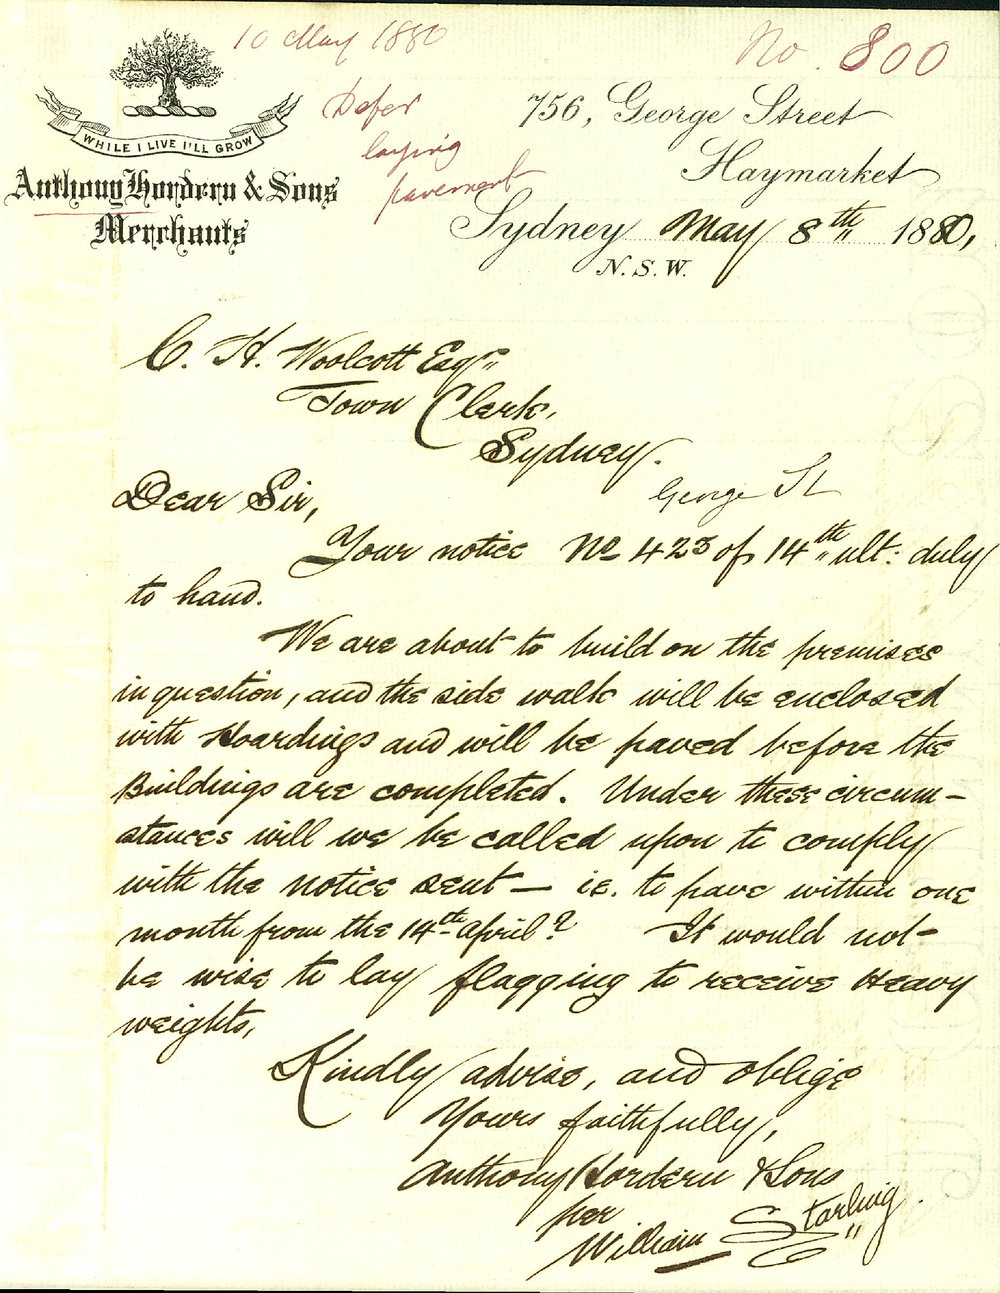 10 May 1880
No. 800
Defer
laying
pavement
WHILE I LIVE I'LL GROW
Anthony Hordern & Sons
Merchants
756, George Street
Haymarket
Sydney May 8th 1880,
N.S.W.
C. H. Woolcott Esqr
Town Clerk,
Sydney.
Dear Sir,
George St
Your notice No 423 of 14th ult: duly
to hand.
We are about to build on the premises
in question, and the side walk will be enclosed
with Hoardings and will be paved before the
Buildings are completed. Under these circum-
stances will we be called upon to comply
with the notice sent - ie. to pave within one
month from the 14th April? It would not
be wise to lay flagging to receive Heavy
weights,
Kindly advise, and oblige
Yours faithfully,
Anthony Hordern & Sons
per
William Starling